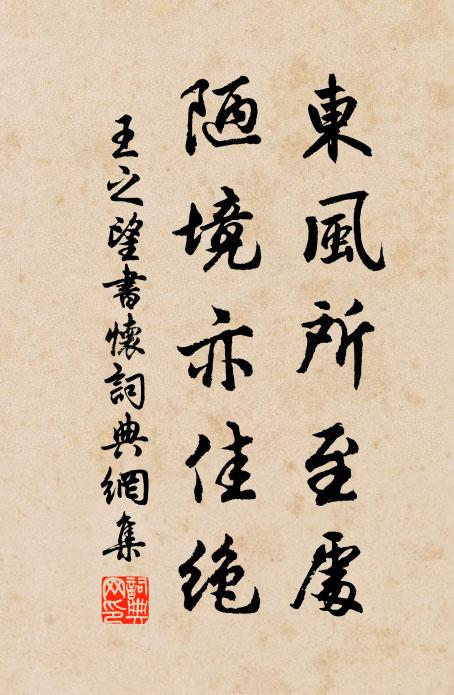 東風所至處
陋境亦佳絶
王之望書懷詞典網集
詞典網印